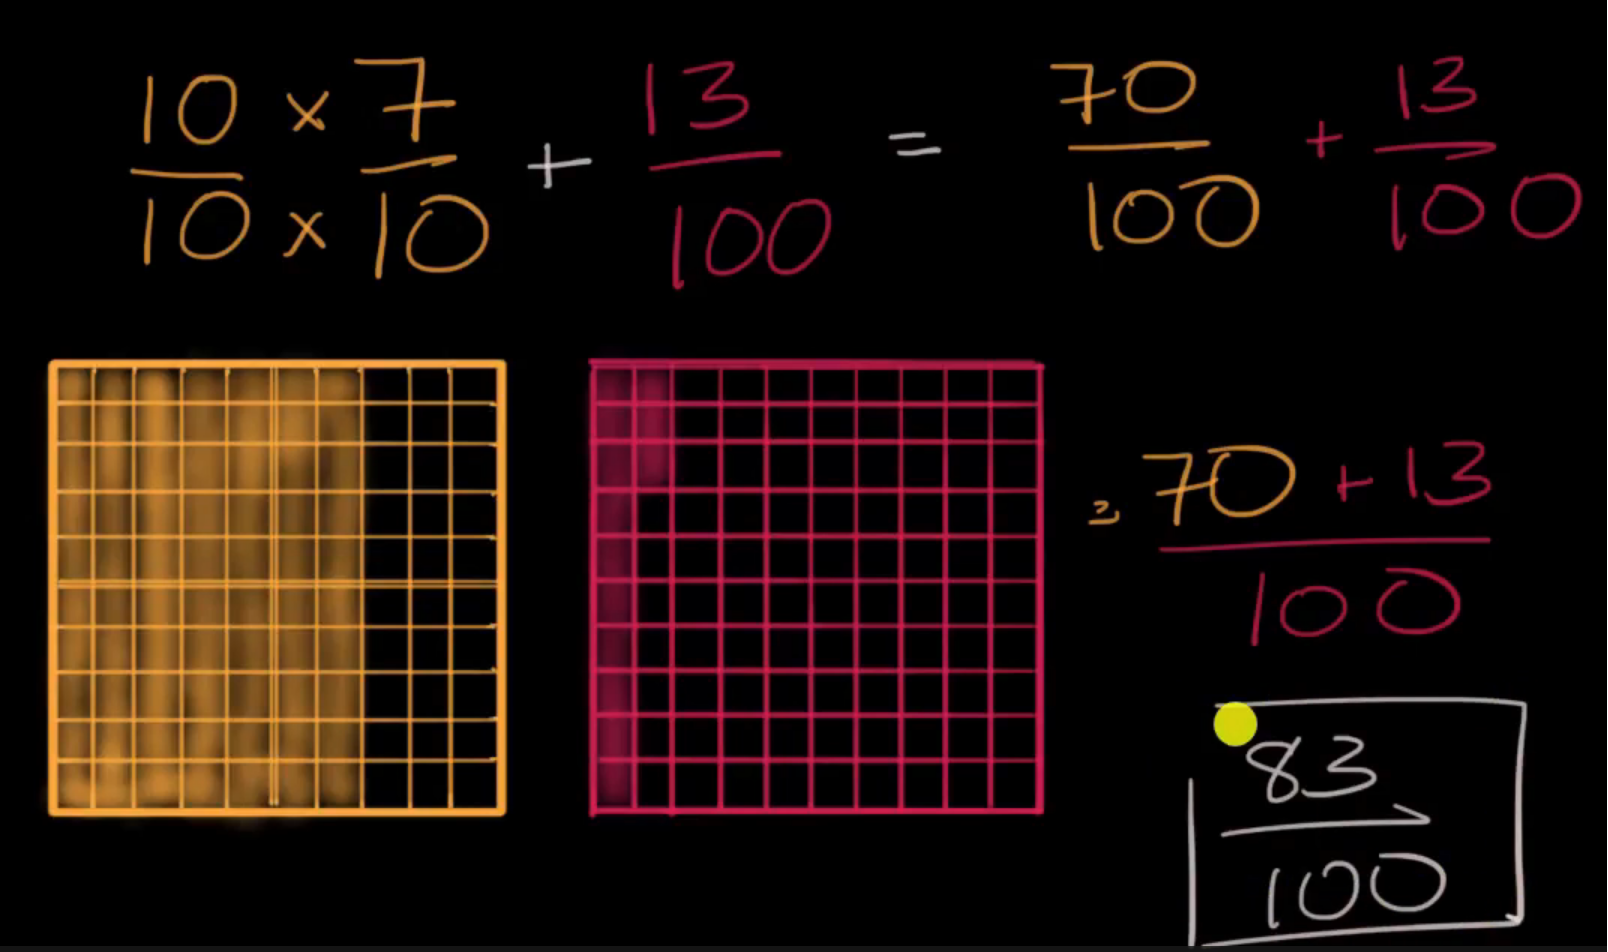 10 × 7 / 10 × 10 + 13/100 = 70/100 + 13/100
= 70 + 13 / 100
83/100